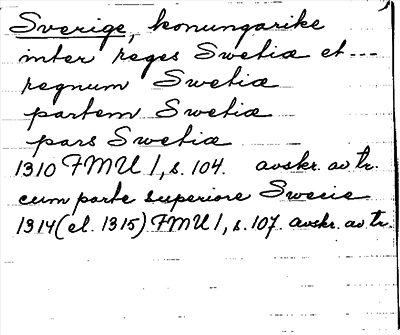 Sverige, konungarike
inter reges Swetiæ et ---
regnum Swetiæ
partem Swetiæ
pars Swetiæ
1310 FMU 1, s. 104. avskr. av tr.
cum parte superiore Swecie
1314 (el. 1315) FMU 1, s. 107. avskr. av tr.